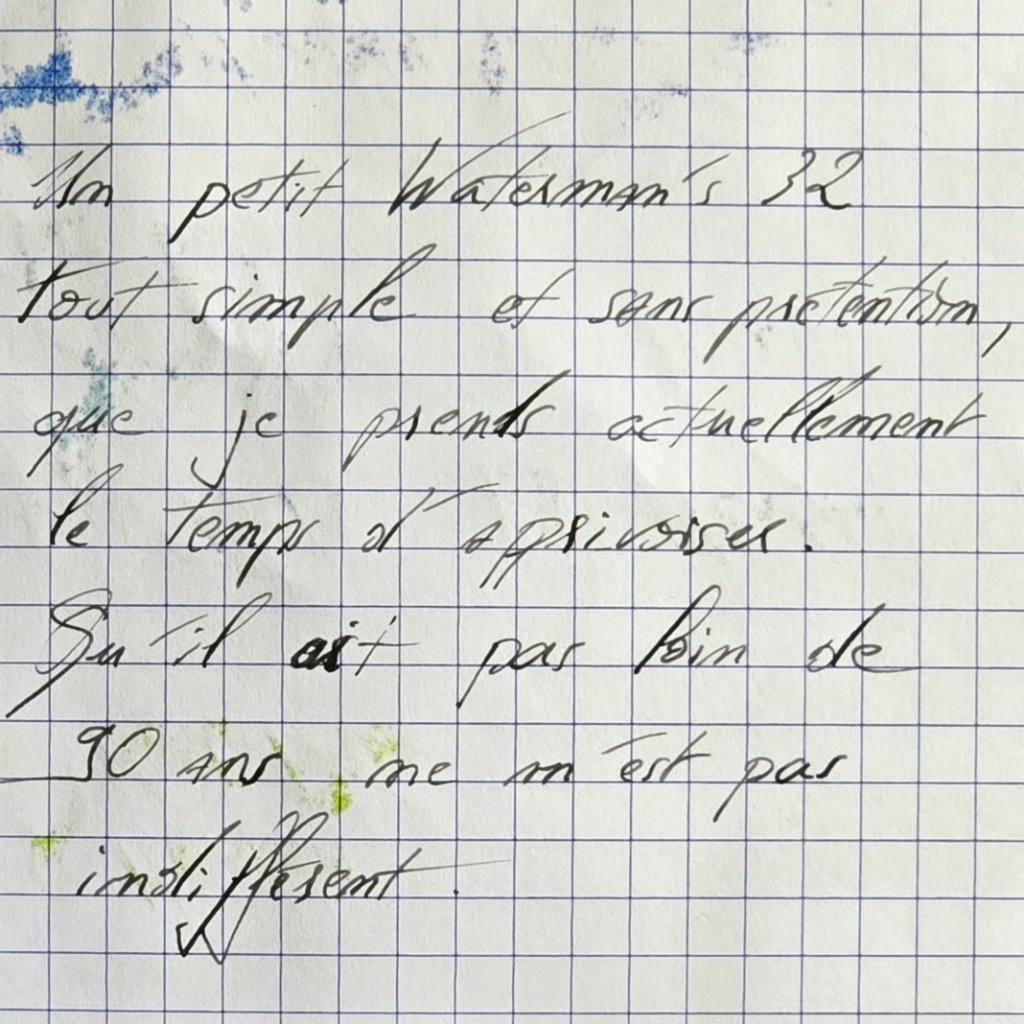 Un petit Waterman's 32
tout simple et sans prétention,
que je prends actuellement
le temps d'apprivoiser.
Qu'il ait pas loin de
90 ans ne m'est pas
indifférent.